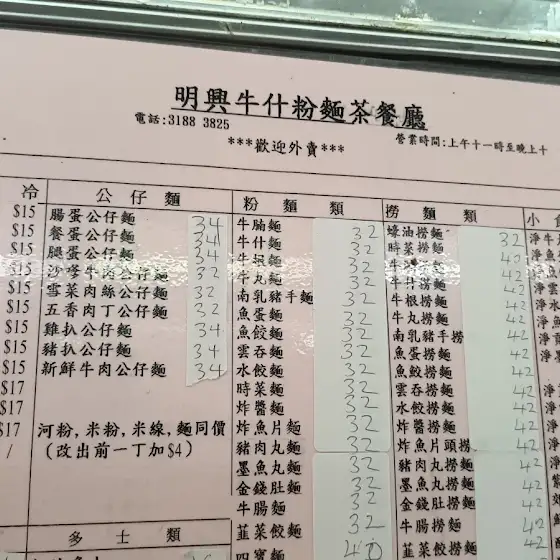 明興牛什粉麵茶餐廳
電話:3188 3825
***歡迎外賣***
營業時間:上午十一時至晚上十
冷
$15
$15
$15
$15
$15
$15
$15
$15
$15
$17
$17
$17
/
公仔麵
腸蛋公仔麵 34
餐蛋公仔麵 34
腿蛋公仔麵 34
沙嗲牛肉公仔麵 32
雪菜肉絲公仔麵 32
五香肉丁公仔麵 32
雞扒公仔麵 34
豬扒公仔麵 34
新鮮牛肉公仔麵 34
河粉,米粉,米線,麵同價
(改出前一丁加$4)
多士類
粉麵類
牛腩麵 32
牛什麵 32
牛根麵 32
牛丸麵 32
南乳豬手麵 32
魚蛋麵 32
魚餃麵 32
雲吞麵 32
水餃麵 32
時菜麵 32
炸醬麵 32
炸魚片麵 32
豬肉丸麵 32
墨魚丸麵 32
金錢肚麵 32
牛腸麵 32
韮菜餃麵 32
四寶麵 40
撈麵類
蠔油撈麵 32
時菜撈麵 42
牛什撈麵 42
牛根撈麵 42
牛丸撈麵 42
南乳豬手撈 42
魚蛋撈麵 42
魚餃撈麵 42
雲吞撈麵 42
水餃撈麵 42
炸醬撈麵 42
炸魚片頭撈 42
豬肉丸撈麵 42
墨魚丸撈麵 42
金錢肚撈麵 42
牛腸撈麵 42
韮菜餃撈麵 42
小食
淨牛
淨魚